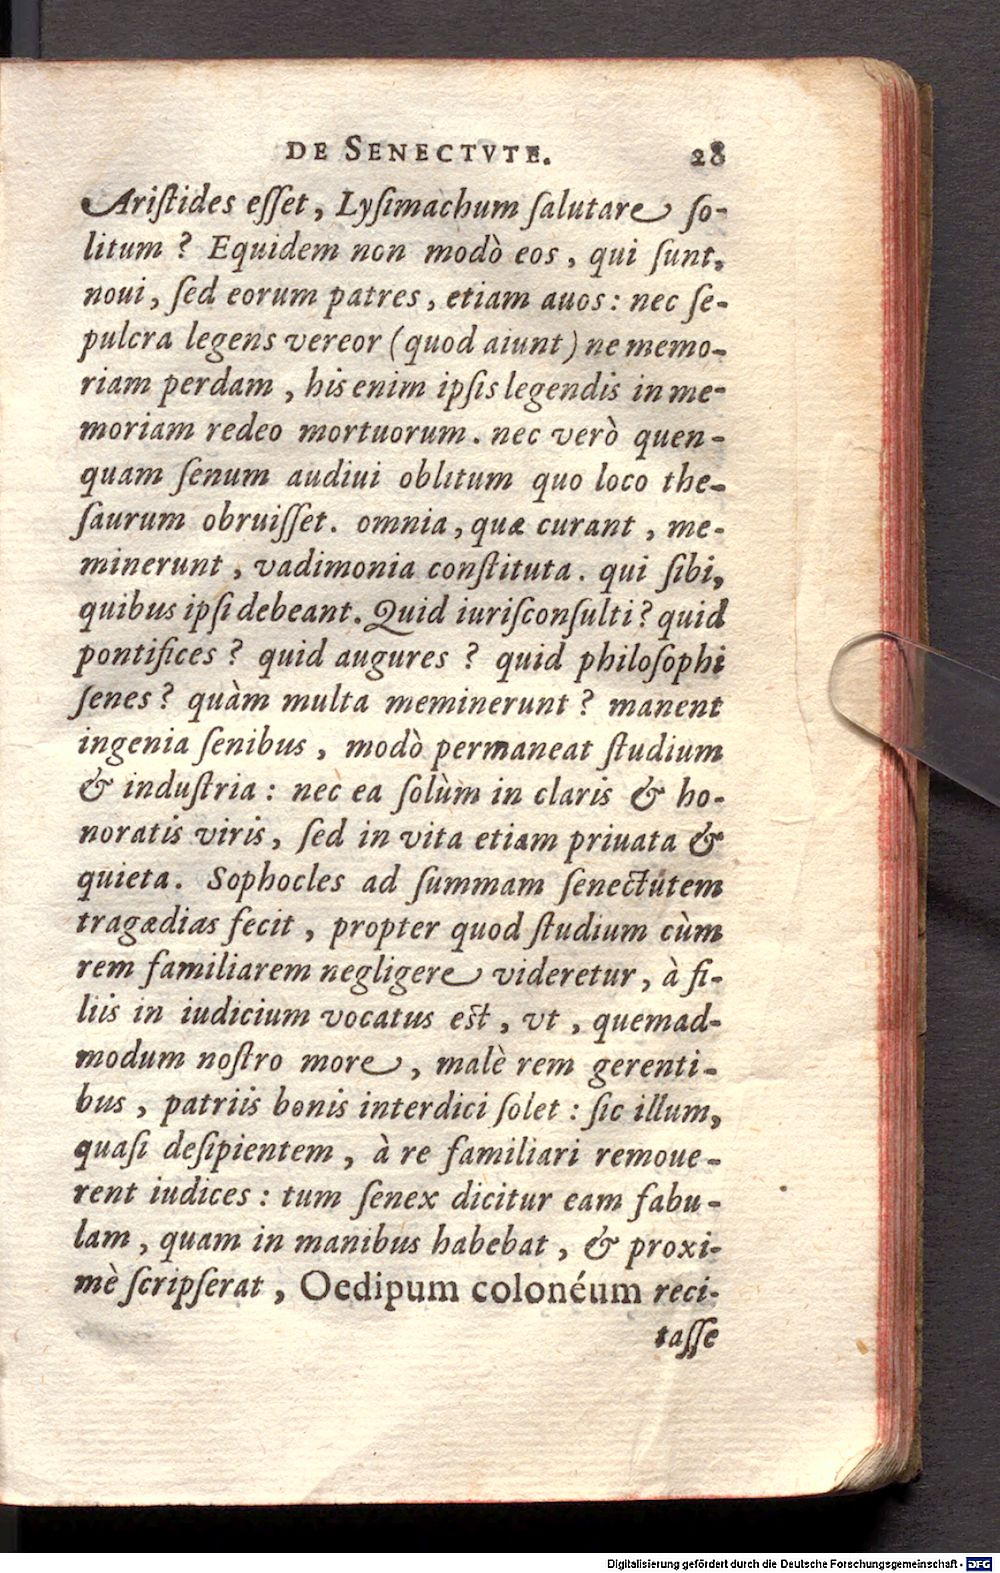 DE SENECTVTE. 28
Aristides esset, Lysimachum salutare so-
litum? Equidem non modò eos, qui sunt,
noui, sed eorum patres, etiam auos: nec se-
pulcra legens vereor (quod aiunt) ne memo-
riam perdam, his enim ipsis legendis in me-
moriam redeo mortuorum. nec verò quen-
quam senum audiui oblitum quo loco the-
saurum obruisset. omnia, quæ curant, me-
minerunt, vadimonia constituta. qui sibi,
quibus ipsi debeant. Quid iurisconsulti? quid
pontifices? quid augures? quid philosophi
senes? quàm multa meminerunt? manent
ingenia senibus, modò permaneat studium
& industria: nec ea solùm in claris & ho-
noratis viris, sed in vita etiam priuata &
quieta. Sophocles ad summam senectutem
tragædias fecit, propter quod studium cùm
rem familiarem negligere videretur, à fi-
liis in iudicium vocatus est, vt, quemad-
modum nostro more, malè rem gerenti-
bus, patriis bonis interdici solet: sic illum,
quasi desipientem, à re familiari remoue-
rent iudices: tum senex dicitur eam fabu-
lam, quam in manibus habebat, & proxi-
mè scripserat, Oedipum colonéum reci-
tasse
Digitalisierung gefördert durch die Deutsche Forschungsgemeinschaft - DFG